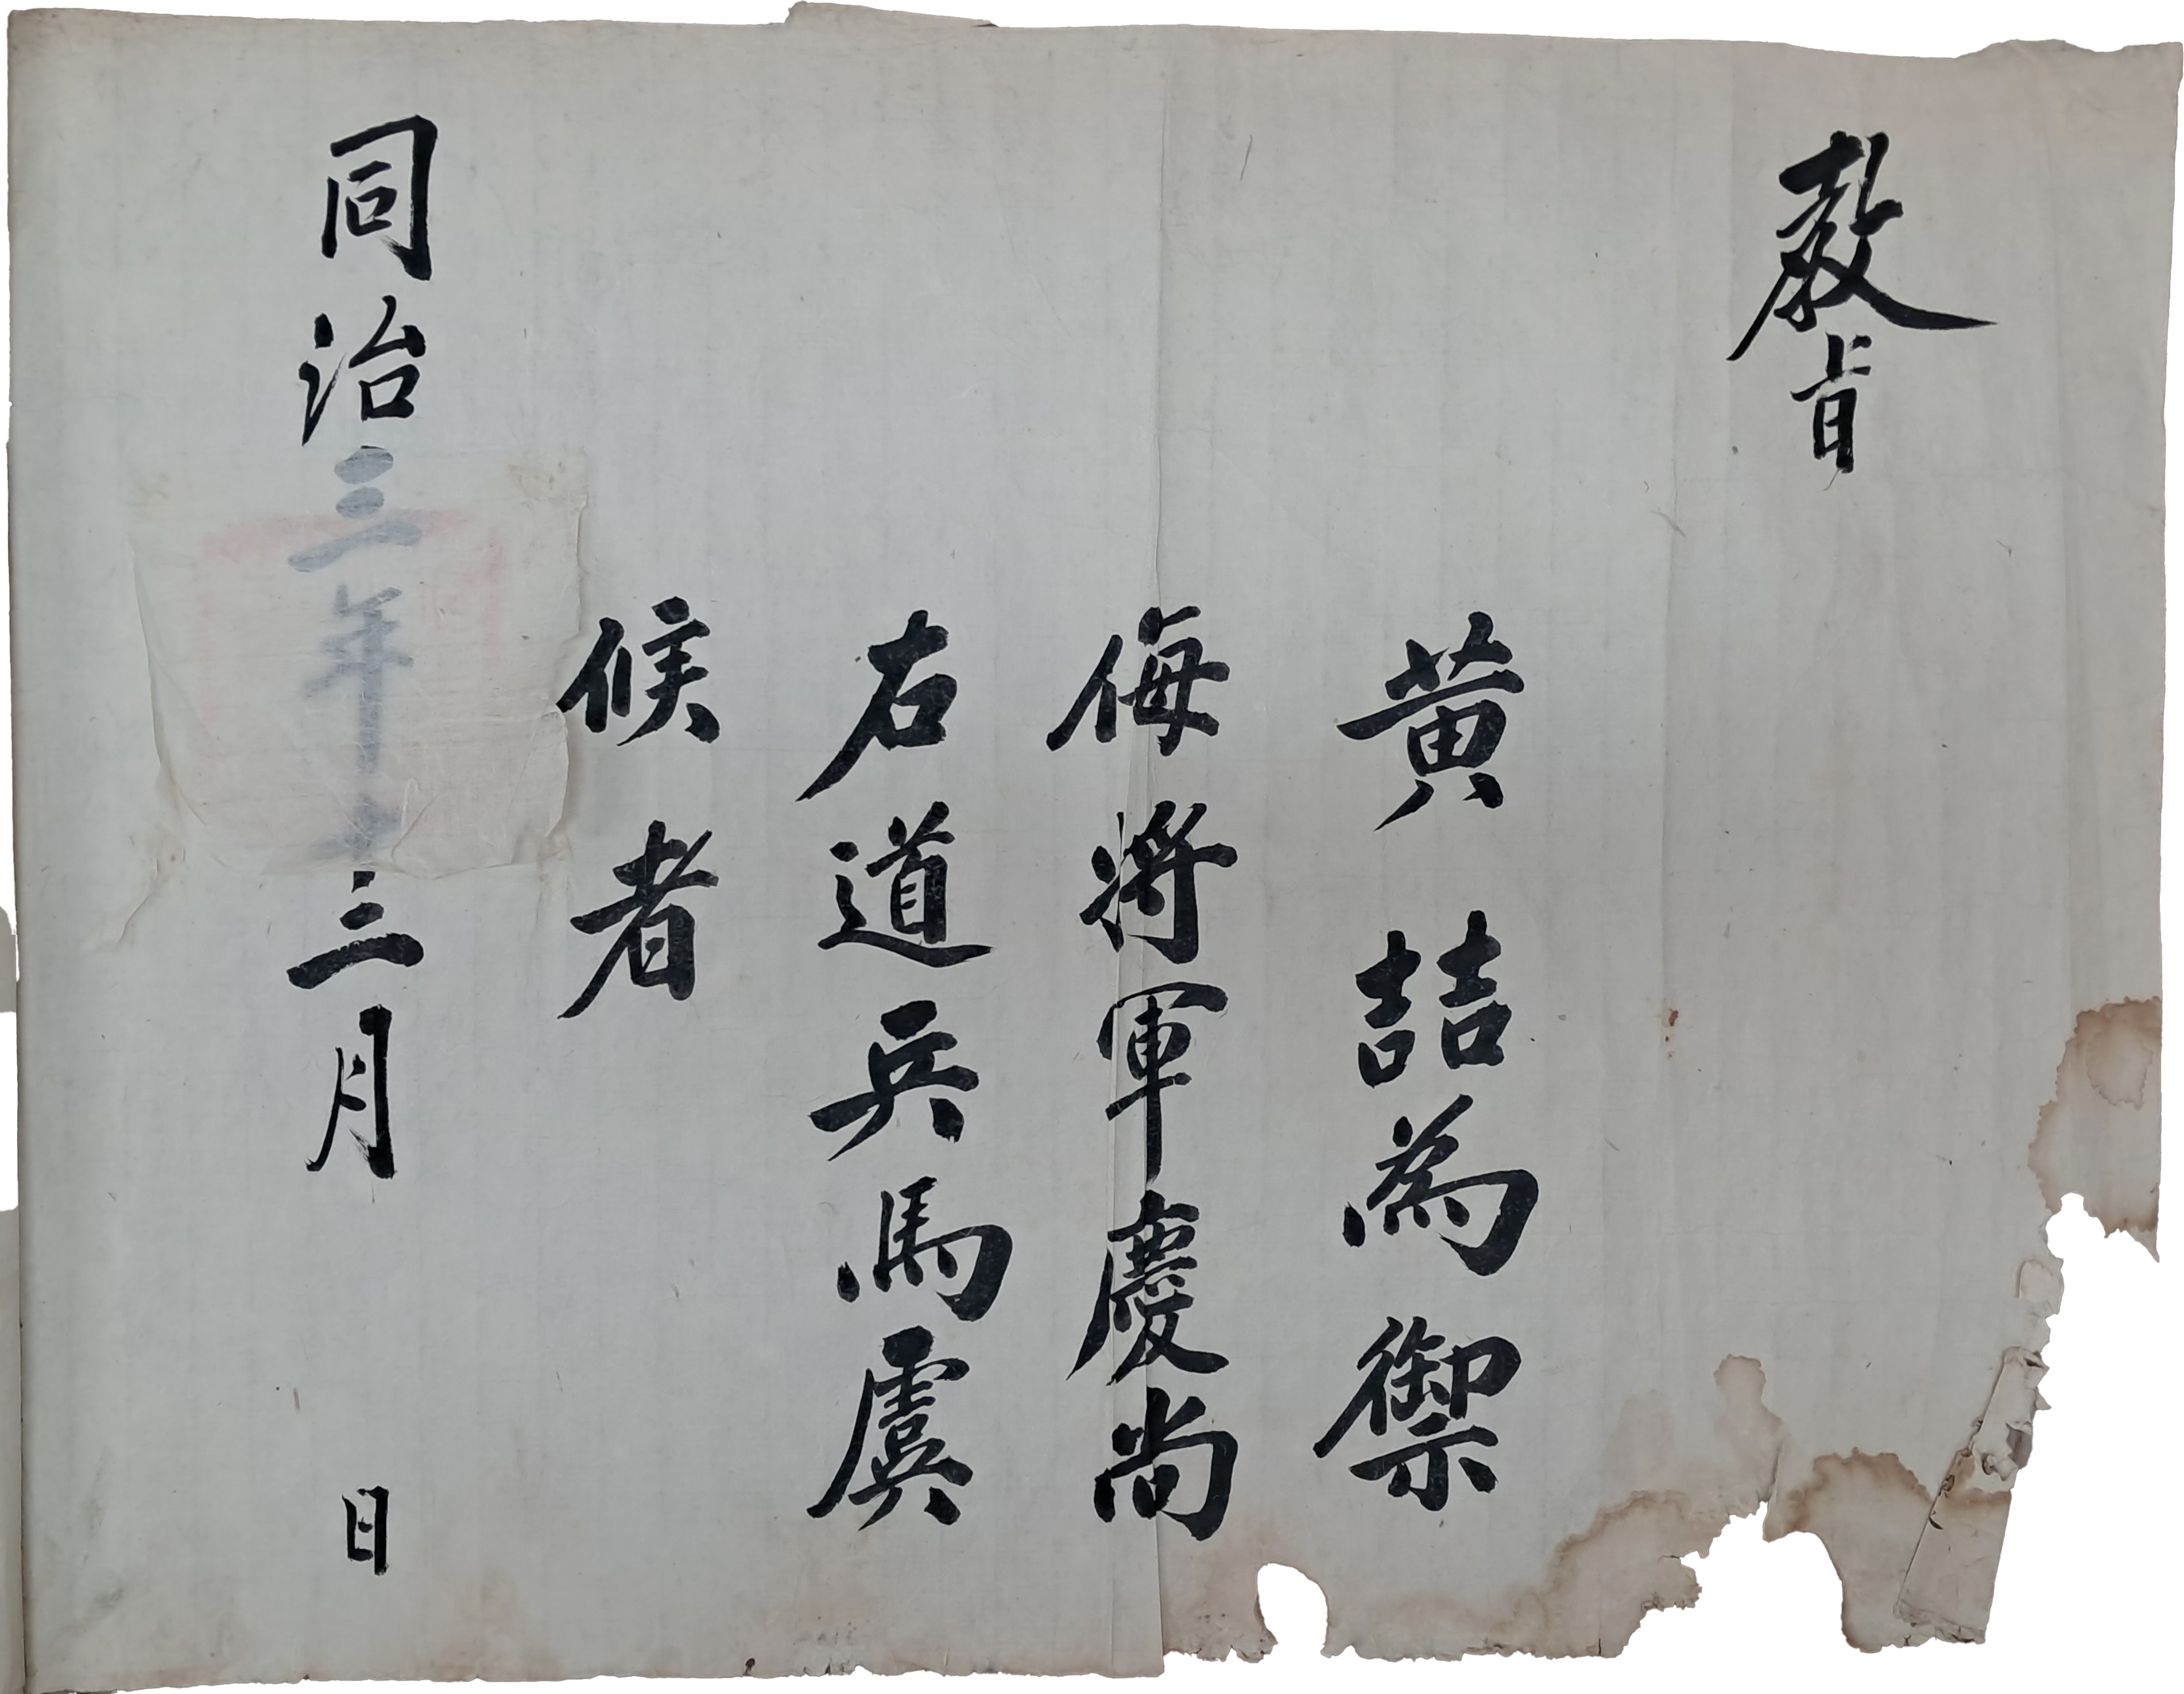 敎旨
黄喆為禦
侮將軍慶尚
右道兵馬虞
候者
同治三年十二月　日